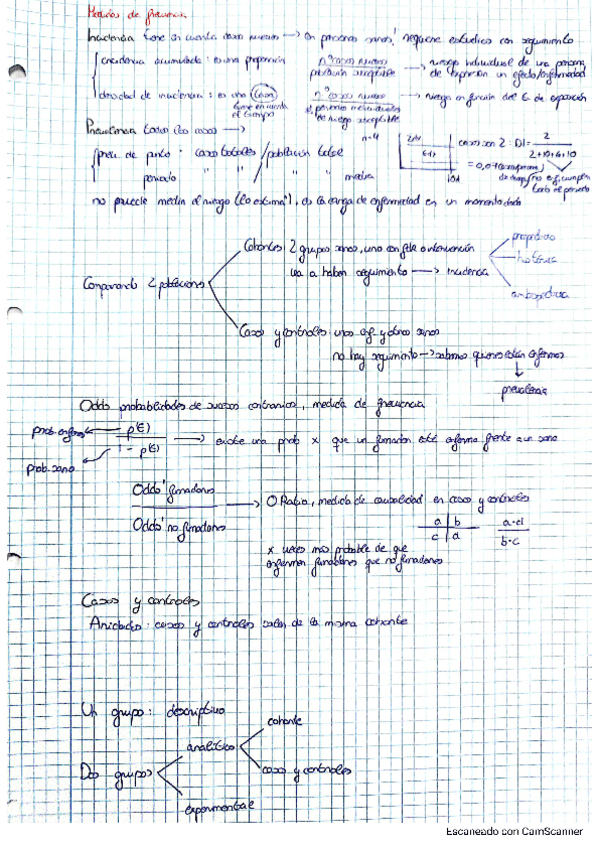 Medidas de frecuencia
Incidencia tiene en cuenta casos nuevos → en personas sanas! requiere estudios con seguimiento
incidencia acumulada: es una proporción nº casos nuevos / población susceptible → riesgo individual de una persona de desarrollar un efecto/enfermedad
densidad de incidencia: es una tasa nº casos nuevos → riesgo en función del t. de exposición
tiene en cuenta el tiempo
de riesgo susceptible
Prevalencia todos los casos → n=4
prev. de punto: casos totales / población total
periodo " " / " " media
casos son 2: DI = 2 / 2+10+6+10
= 0,07
10d
todo el periodo
no puede medir el riesgo (lo estima), es la carga de enfermedad en un momento dado
Cohortes 2 grupos sanos, uno con fde o intervención
va a haber seguimiento → incidencia
prospectiva
histórica
ambispectiva
Comparando 2 poblaciones
Casos y controles: unos enf y otros sanos
no hay seguimiento → sabemos quienes están enfermos
prevalencia
Odds probabilidades de sucesos contrarios, medida de frecuencia
prob. enfermo ← p(E)
1 - p(E) → existe una prob x que un fumador esté enfermo frente a un sano
prob. sano
Odds fumadores
Odds no fumadores
→ O Ratio, medida de causalidad en casos y controles
a b a·d
c d b·c
x veces más probable de que
enfermen fumadores que no fumadores
Casos y controles
Anidados: casos y controles salen de la misma cohorte
Un grupo: descriptivo
cohorte
analítico
Dos grupos
casos y controles
experimental
Escaneado con CamScanner